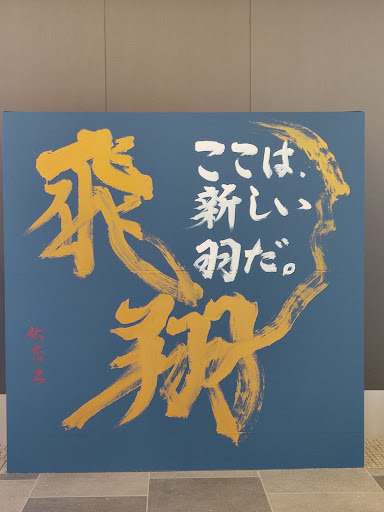 飛翔
ここは、
新しい
羽だ。